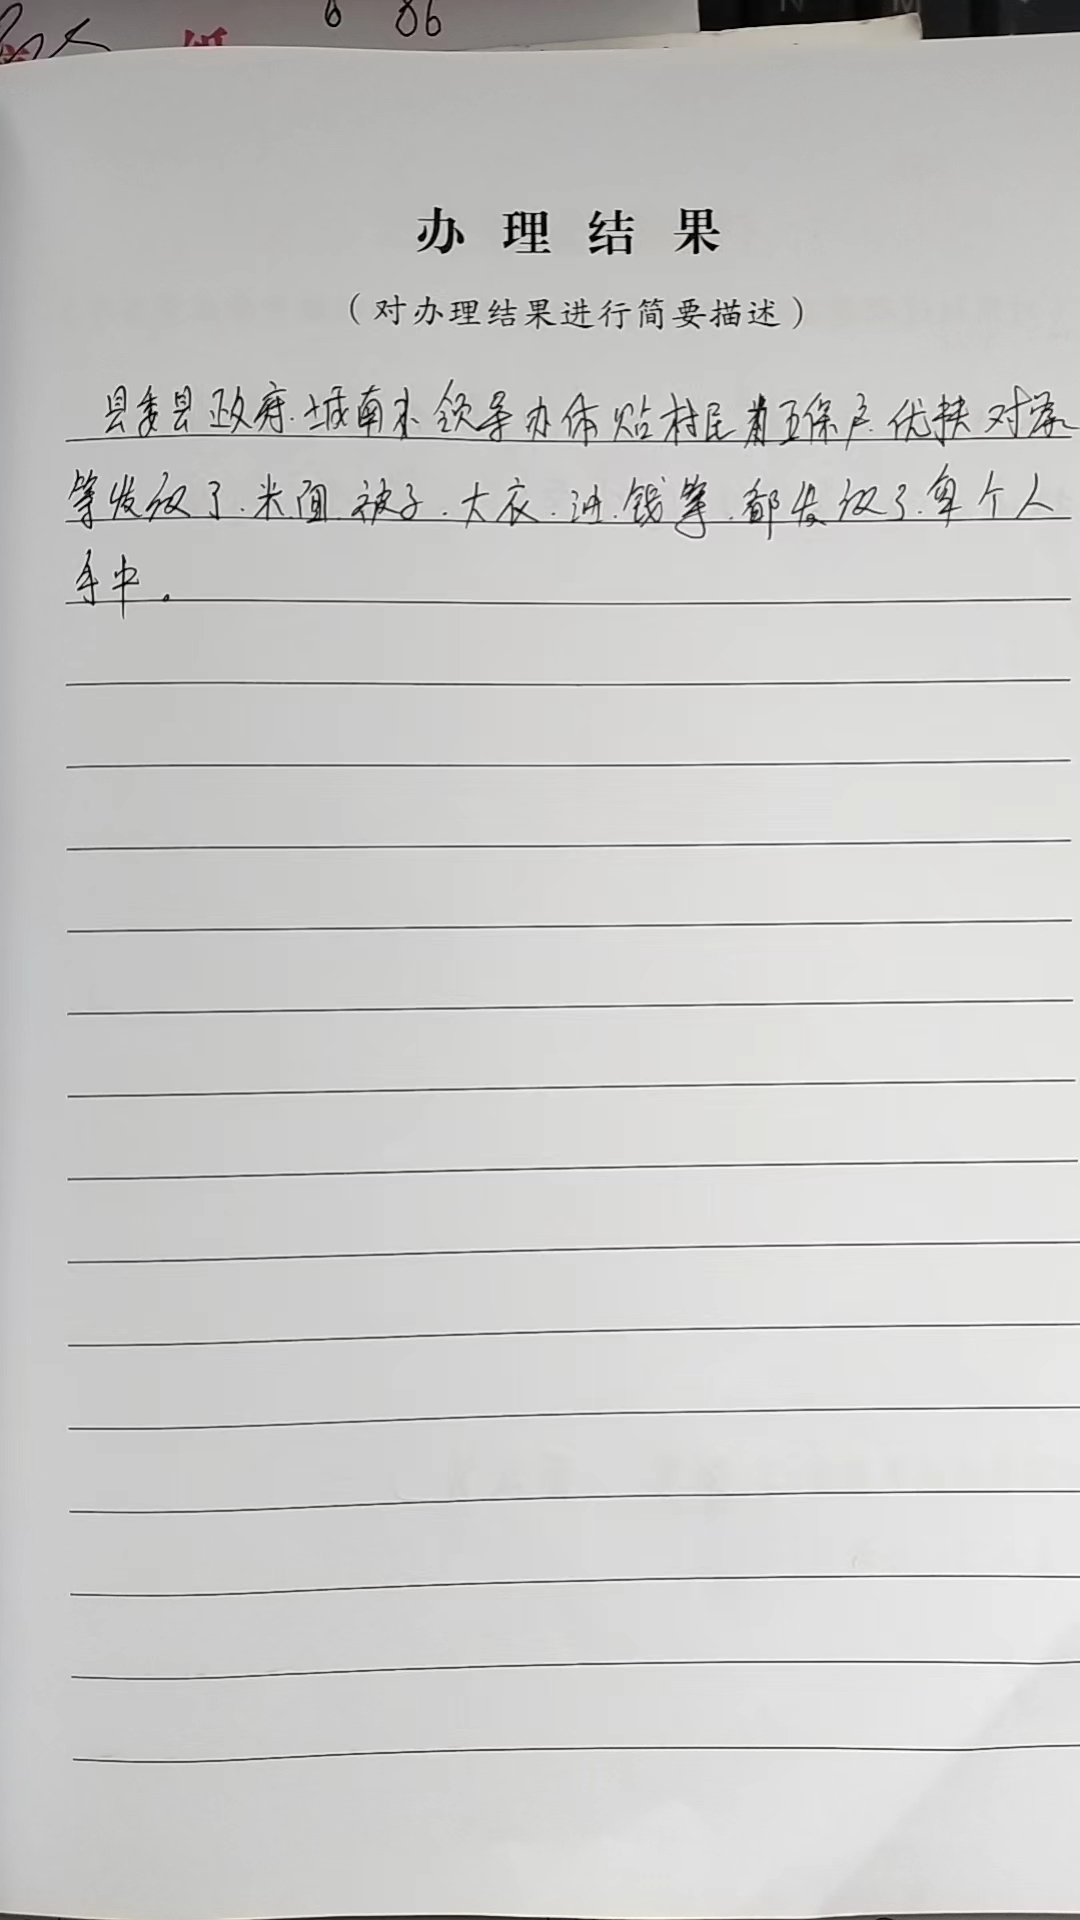 6 86
办理结果
（对办理结果进行简要描述）
县委县政府.城南办领导办体贴村民为五保户.优扶对象
等发放了.米面.被子.大衣.油.钱等.都发放了每个人
手中。